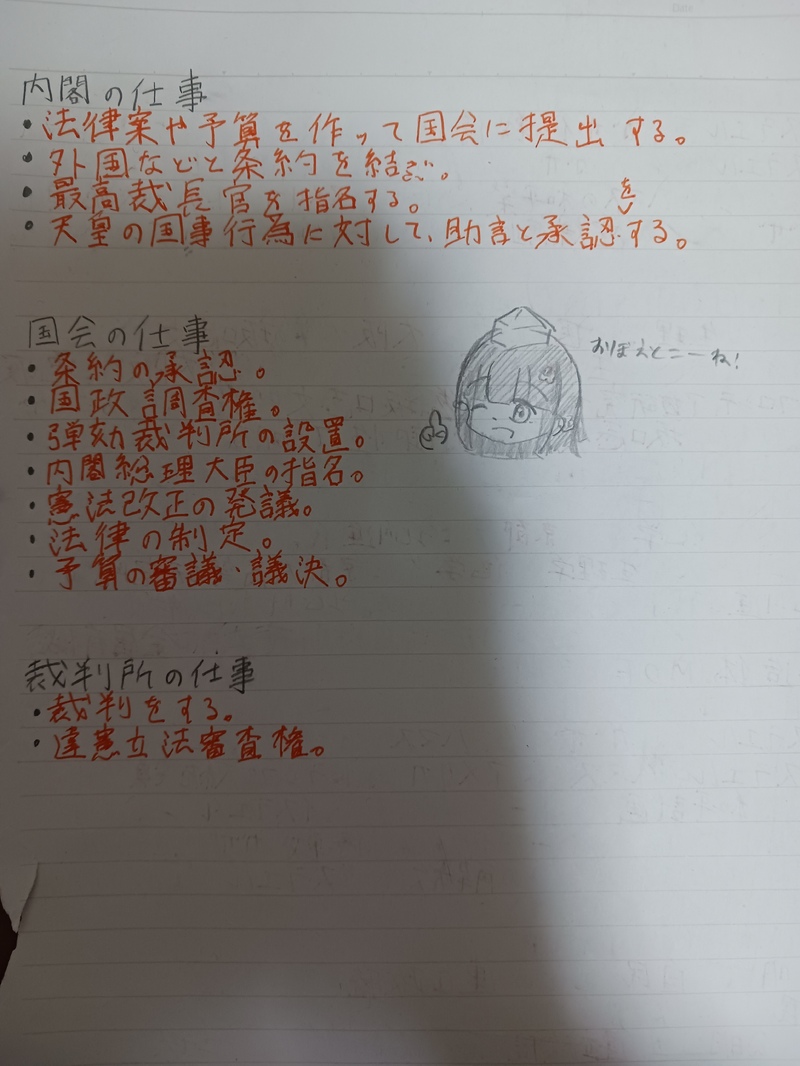 内閣の仕事
・法律案や予算を作って国会に提出する。
・外国などと条約を結ぶ。
・最高裁長官を指名する。
・天皇の国事行為に対して、助言と承認をする。
国会の仕事
・条約の承認。
おぼえとこーね!
・国政調査権。
・弾劾裁判所の設置。
・内閣総理大臣の指名。
・憲法改正の発議。
・法律の制定。
・予算の審議・議決。
裁判所の仕事
・裁判をする。
・違憲立法審査権。